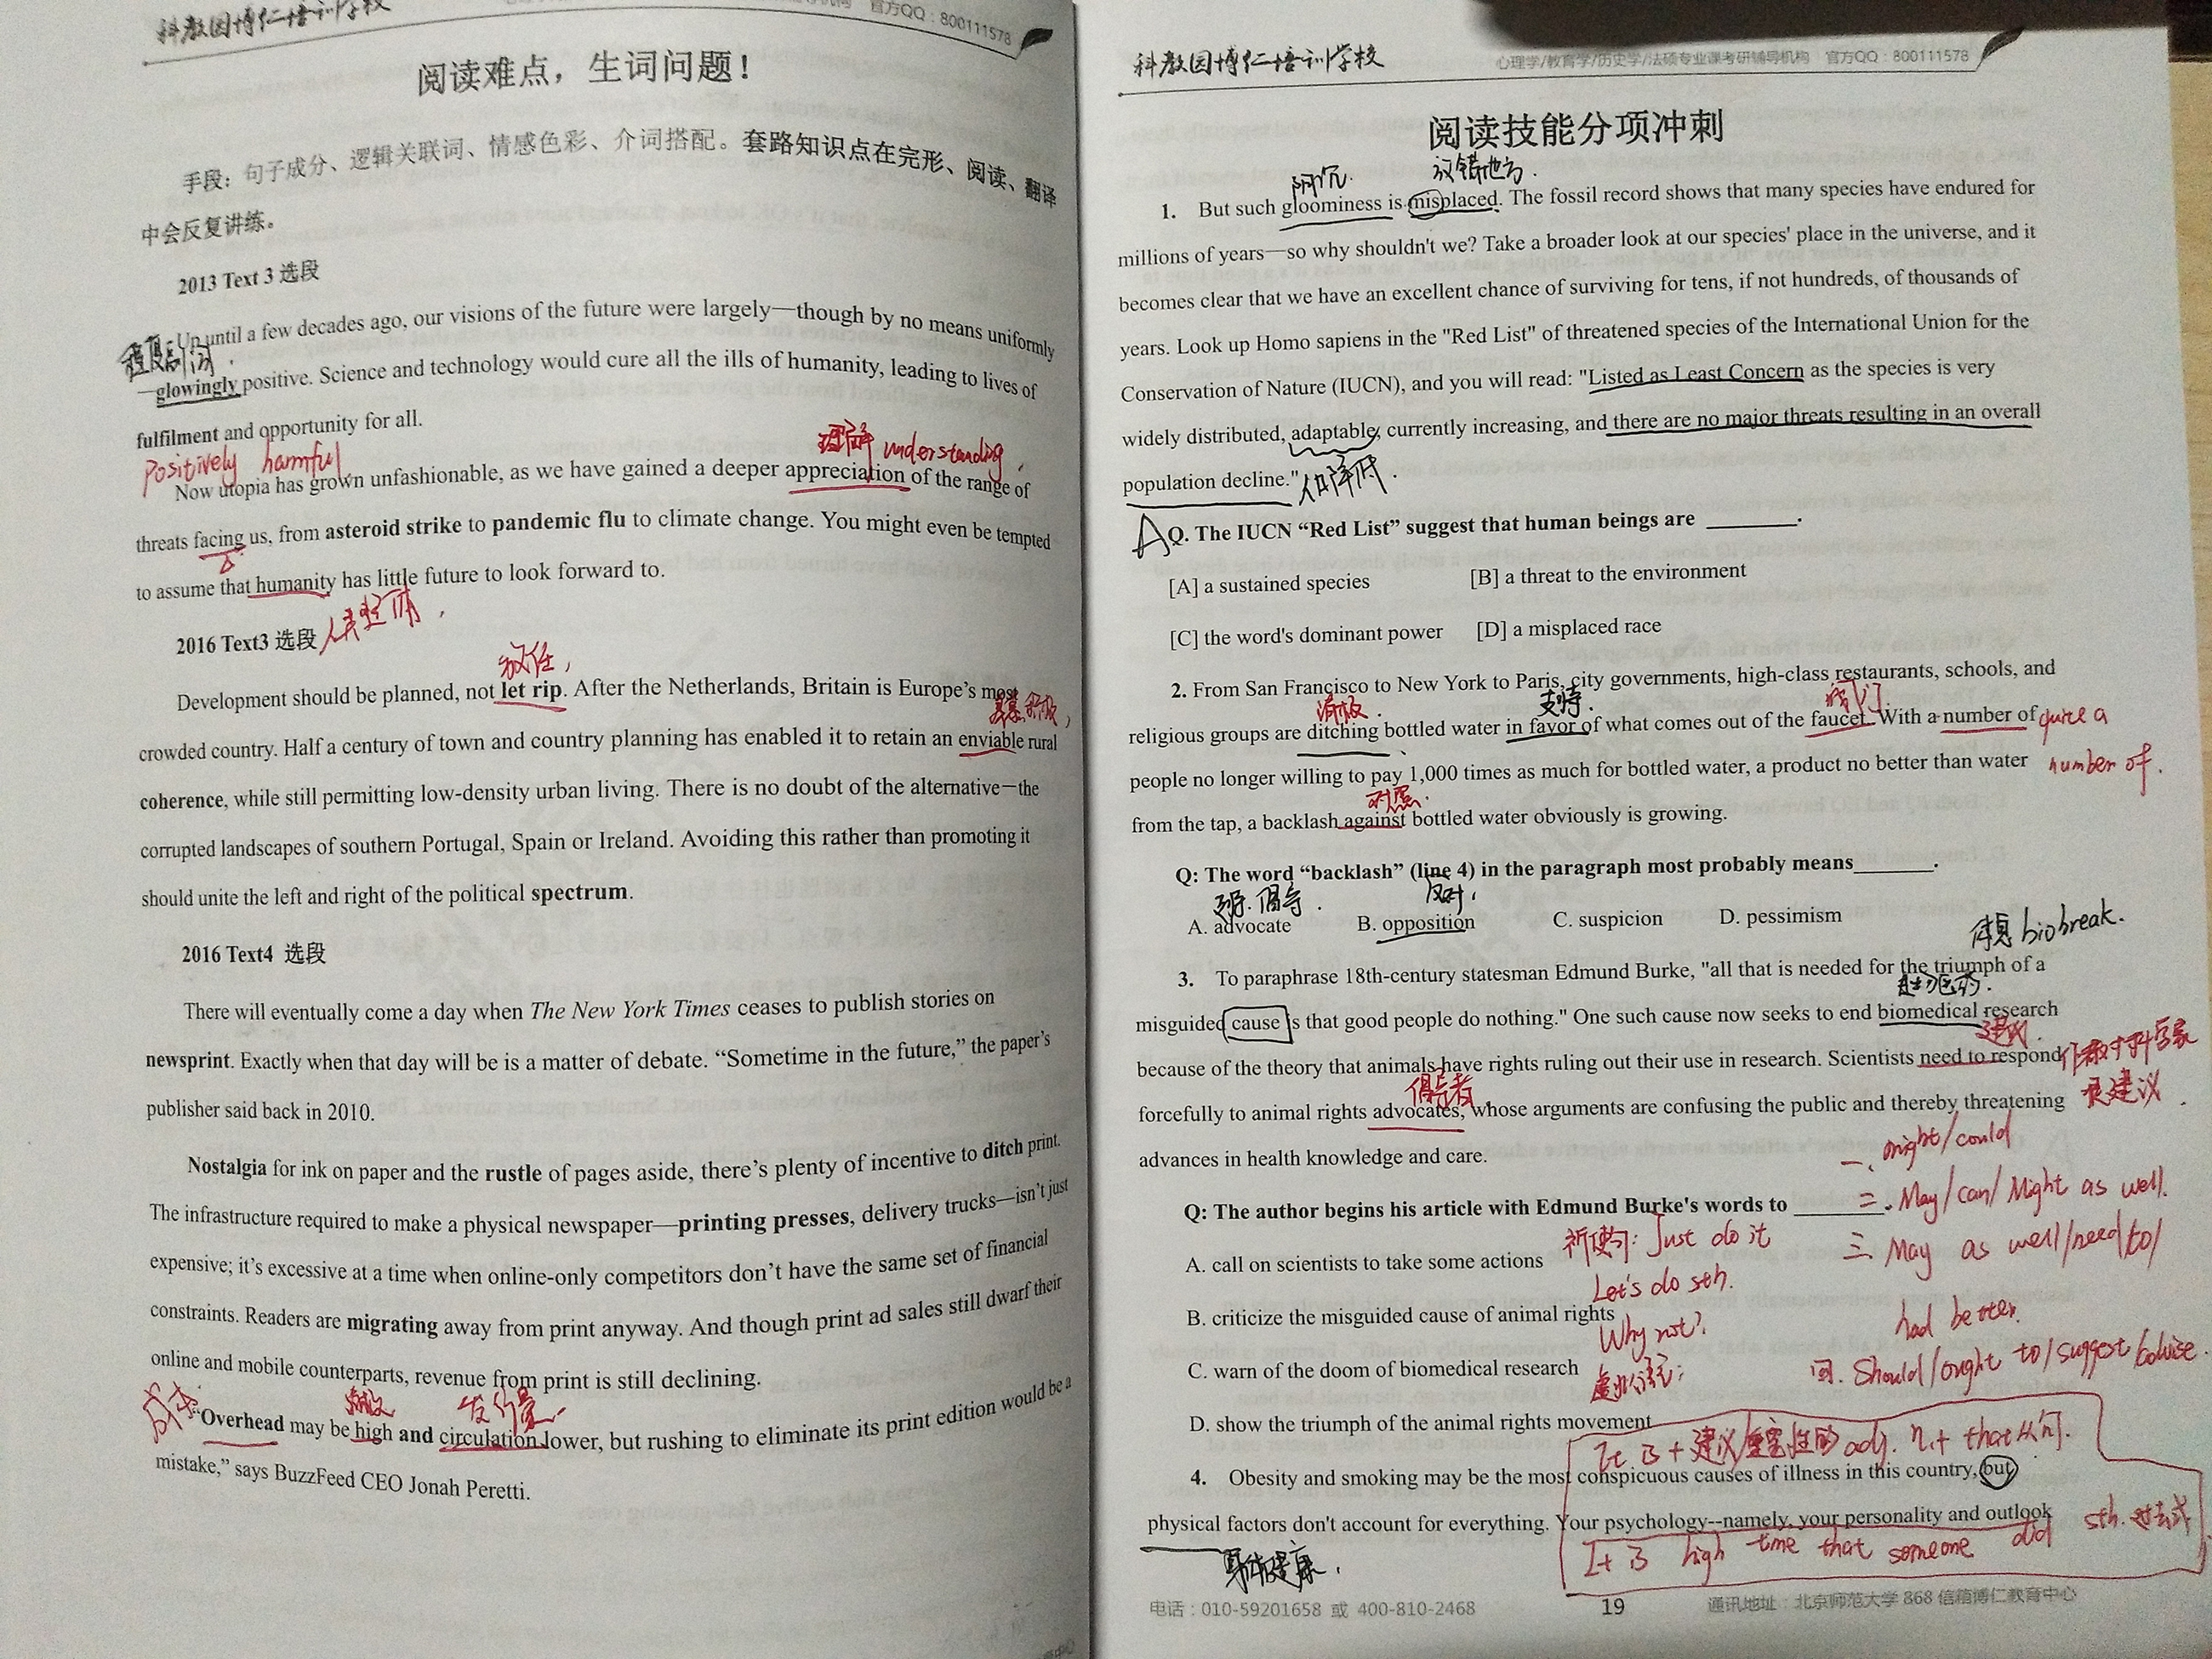 科教园博仁培训学校
官方QQ：800111578
阅读难点，生词问题！
手段：句子成分、逻辑关联词、情感色彩、介词搭配。套路知识点在完形、阅读、翻译
中会反复讲练。
2013 Text 3 选段
Up until a few decades ago, our visions of the future were largely—though by no means uniformly
程度副词.
—glowingly positive. Science and technology would cure all the ills of humanity, leading to lives of
fulfilment and opportunity for all.
理解 understanding.
Positively harmful.
Now utopia has grown unfashionable, as we have gained a deeper appreciation of the range of
threats facing us, from asteroid strike to pandemic flu to climate change. You might even be tempted
to assume that humanity has little future to look forward to.
2016 Text3 选段
放任,
Development should be planned, not let rip. After the Netherlands, Britain is Europe's most
crowded country. Half a century of town and country planning has enabled it to retain an enviable rural
coherence, while still permitting low-density urban living. There is no doubt of the alternative—the
corrupted landscapes of southern Portugal, Spain or Ireland. Avoiding this rather than promoting it
should unite the left and right of the political spectrum.
2016 Text4 选段
There will eventually come a day when The New York Times ceases to publish stories on
newsprint. Exactly when that day will be is a matter of debate. “Sometime in the future,” the paper's
publisher said back in 2010.
Nostalgia for ink on paper and the rustle of pages aside, there's plenty of incentive to ditch print.
The infrastructure required to make a physical newspaper—printing presses, delivery trucks—isn't just
expensive; it's excessive at a time when online-only competitors don't have the same set of financial
constraints. Readers are migrating away from print anyway. And though print ad sales still dwarf their
online and mobile counterparts, revenue from print is still declining.
成本
发行量
“Overhead may be high and circulation lower, but rushing to eliminate its print edition would be a
mistake,” says BuzzFeed CEO Jonah Peretti.
科教园博仁培训学校
心理学/教育学/历史学/法硕专业课考研辅导机构 官方QQ：800111578
阅读技能分项冲刺
阴沉. 放错地方.
1. But such gloominess is misplaced. The fossil record shows that many species have endured for
millions of years—so why shouldn't we? Take a broader look at our species' place in the universe, and it
becomes clear that we have an excellent chance of surviving for tens, if not hundreds, of thousands of
years. Look up Homo sapiens in the "Red List" of threatened species of the International Union for the
Conservation of Nature (IUCN), and you will read: "Listed as Least Concern as the species is very
widely distributed, adaptable, currently increasing, and there are no major threats resulting in an overall
population decline."
人口降低.
A
Q. The IUCN “Red List” suggest that human beings are ________.
[A] a sustained species [B] a threat to the environment
[C] the word's dominant power [D] a misplaced race
2. From San Francisco to New York to Paris, city governments, high-class restaurants, schools, and
支持.
religious groups are ditching bottled water in favor of what comes out of the faucet. With a number of
quite a
number of.
people no longer willing to pay 1,000 times as much for bottled water, a product no better than water
对照.
from the tap, a backlash against bottled water obviously is growing.
Q: The word “backlash” (line 4) in the paragraph most probably means_______.
倡导. 反对,
A. advocate B. opposition C. suspicion D. pessimism
biobreak.
3. To paraphrase 18th-century statesman Edmund Burke, "all that is needed for the triumph of a
生物医药.
misguided cause is that good people do nothing." One such cause now seeks to end biomedical research
建议.
because of the theory that animals have rights ruling out their use in research. Scientists need to respond
作者对于科学家
倡导者.
forcefully to animal rights advocates, whose arguments are confusing the public and thereby threatening
提建议.
advances in health knowledge and care.
一、might/could
Q: The author begins his article with Edmund Burke's words to ________.
二. May/can/Might as well.
A. call on scientists to take some actions
祈使句: Just do it
Let's do sth.
三. May as well/need to/
had better.
B. criticize the misguided cause of animal rights
Why not?
C. warn of the doom of biomedical research
虚拟语气:
四. Should/ought to/suggest/advise.
D. show the triumph of the animal rights movement
It is + 建议/重要性的 adj. n. + that从句.
4. Obesity and smoking may be the most conspicuous causes of illness in this country, but
physical factors don't account for everything. Your psychology--namely, your personality and outlook
身体健康.
It is high time that someone did sth. 过去式
电话：010-59201658 或 400-810-2468
19
通讯地址：北京师范大学 868 信箱博仁教育中心